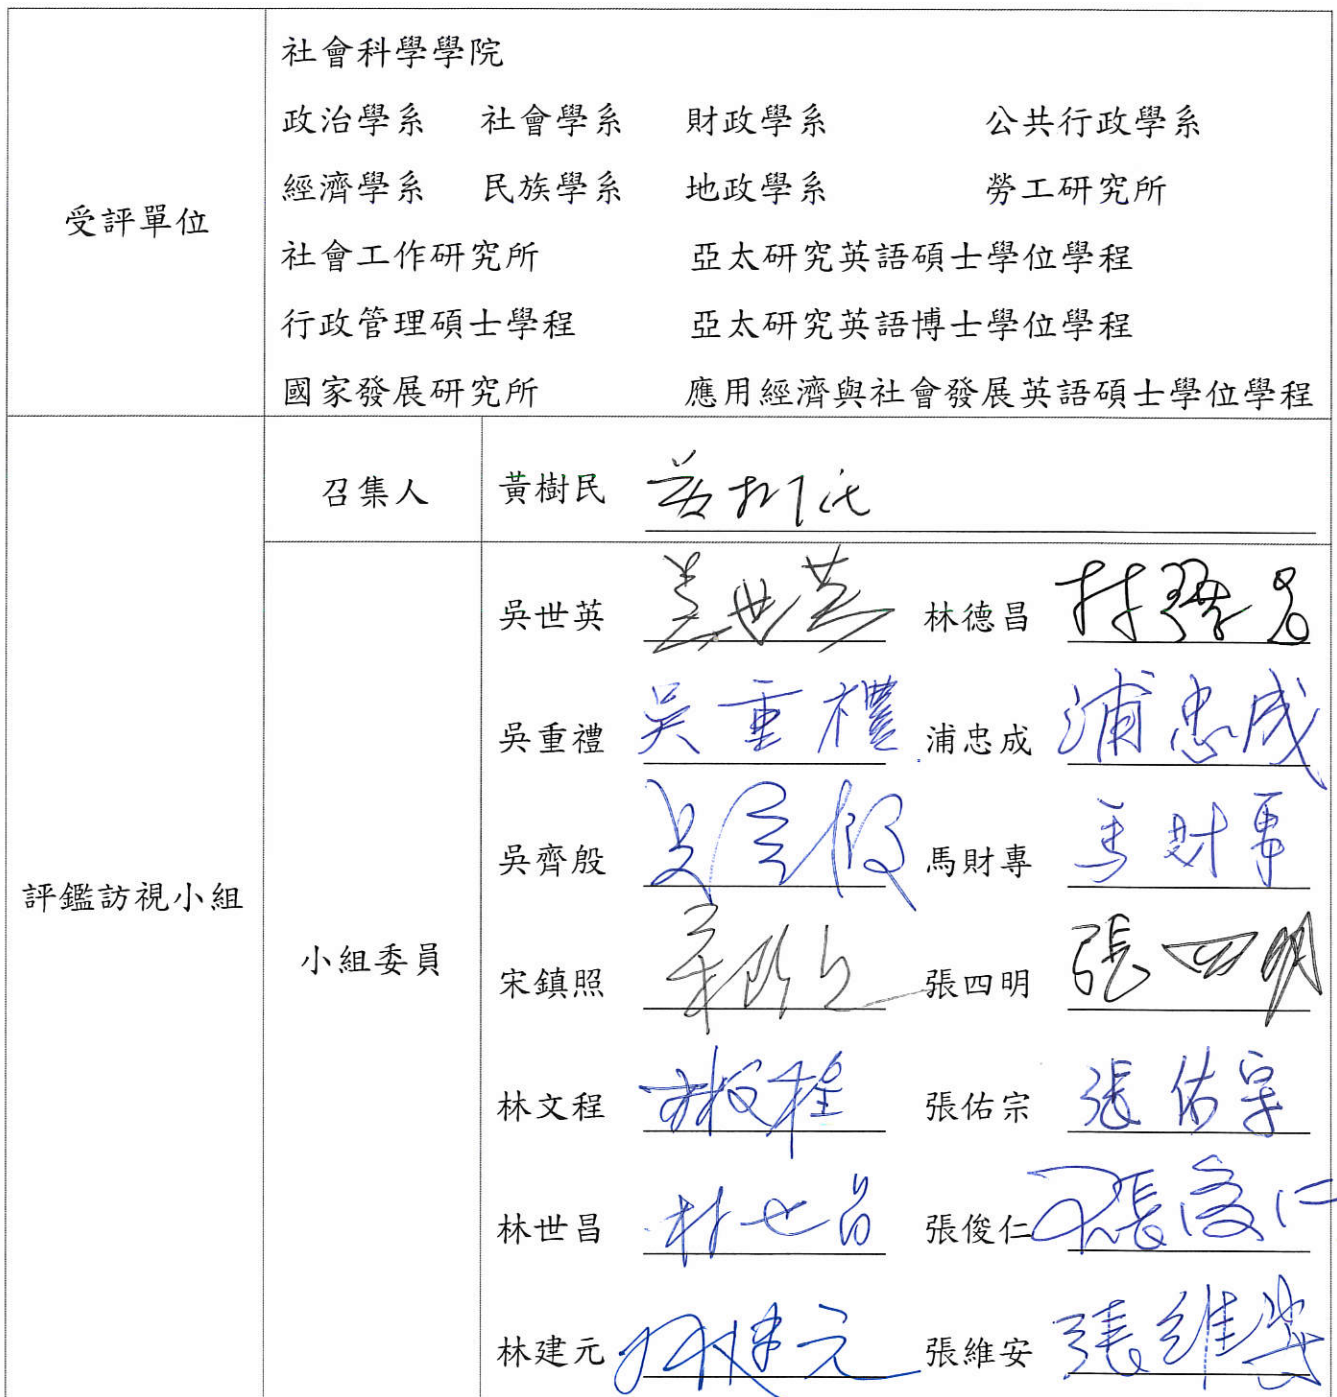 受評單位
社會科學學院
政治學系 社會學系 財政學系 公共行政學系
經濟學系 民族學系 地政學系 勞工研究所
社會工作研究所 亞太研究英語碩士學位學程
行政管理碩士學程 亞太研究英語博士學位學程
國家發展研究所 應用經濟與社會發展英語碩士學位學程
評鑑訪視小組
召集人 黃樹民 黃樹民
小組委員
吳世英 吳世英 林德昌 林德昌
吳重禮 吳重禮 浦忠成 浦忠成
吳齊殷 吳齊殷 馬財專 馬財專
宋鎮照 宋鎮照 張四明 張四明
林文程 林文程 張佑宗 張佑宗
林世昌 林世昌 張俊仁 張俊仁
林建元 林建元 張維安 張維安